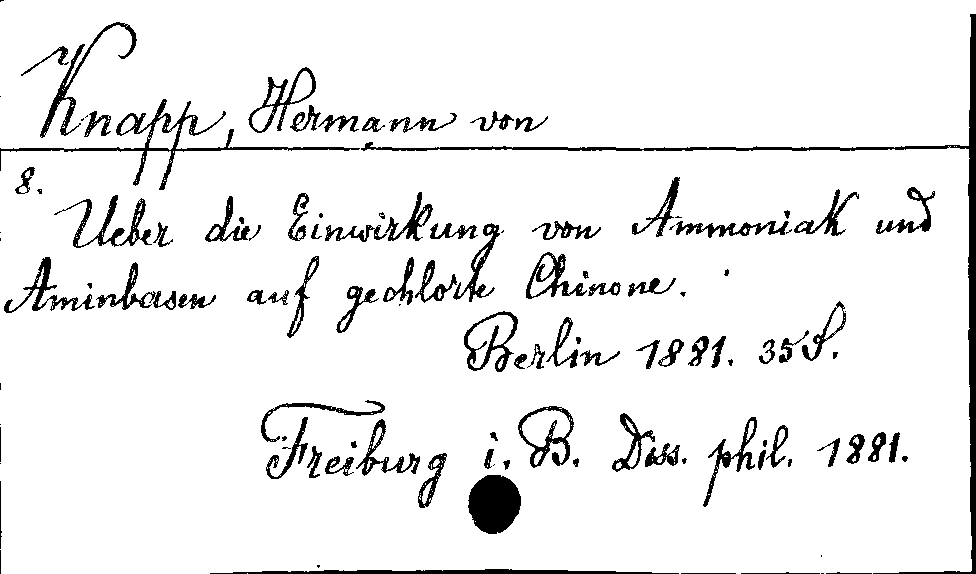 Knapp, Hermann von
8.
Ueber die Einwirkung von Ammoniak und
Aminbasen auf gechlorte Chinone.
Berlin 1881. 35 S.
Freiburg i. B. Diss. phil. 1881.